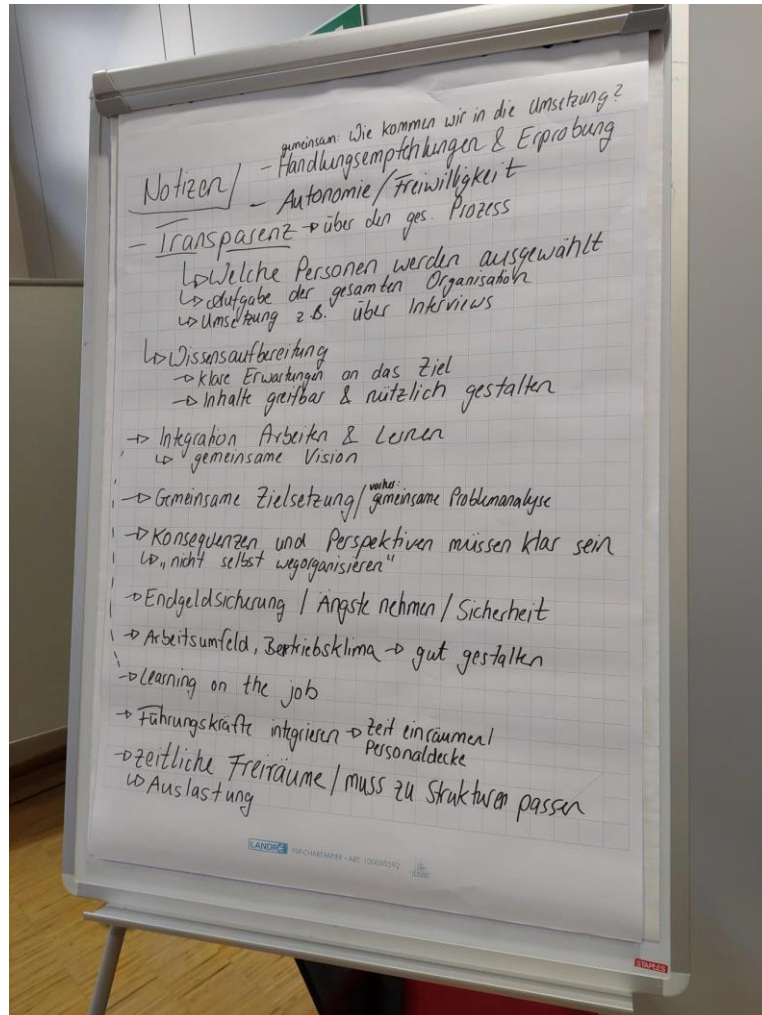 gemeinsam: Wie kommen wir in die Umsetzung?
Notizen/ - Handlungsempfehlungen & Erprobung
- Autonomie/Freiwilligkeit
- Transparenz → über den ges. Prozess
↳ Welche Personen werden ausgewählt
↳ Aufgabe der gesamten Organisation
↳ Umsetzung z.B. über Interviews
↳ Wissensaufbereitung
→ klare Erwartungen an das Ziel
→ Inhalte greifbar & nützlich gestalten
→ Integration Arbeiten & Lernen
↳ gemeinsame Vision
→ Gemeinsame Zielsetzung/ vorher: gemeinsame Problemanalyse
→ Konsequenzen und Perspektiven müssen klar sein
↳ „nicht selbst wegorganisieren"
→ Endgeldsicherung / Ängste nehmen / Sicherheit
→ Arbeitsumfeld, Betriebsklima → gut gestalten
→ Learning on the job
→ Führungskräfte integrieren → Zeit einräumen/
Personaldecke
→ zeitliche Freiräume / muss zu Strukturen passen
↳ Auslastung
LANDRÉ FLIPCHARTPAPIER · ART. 100050592
STAPLES